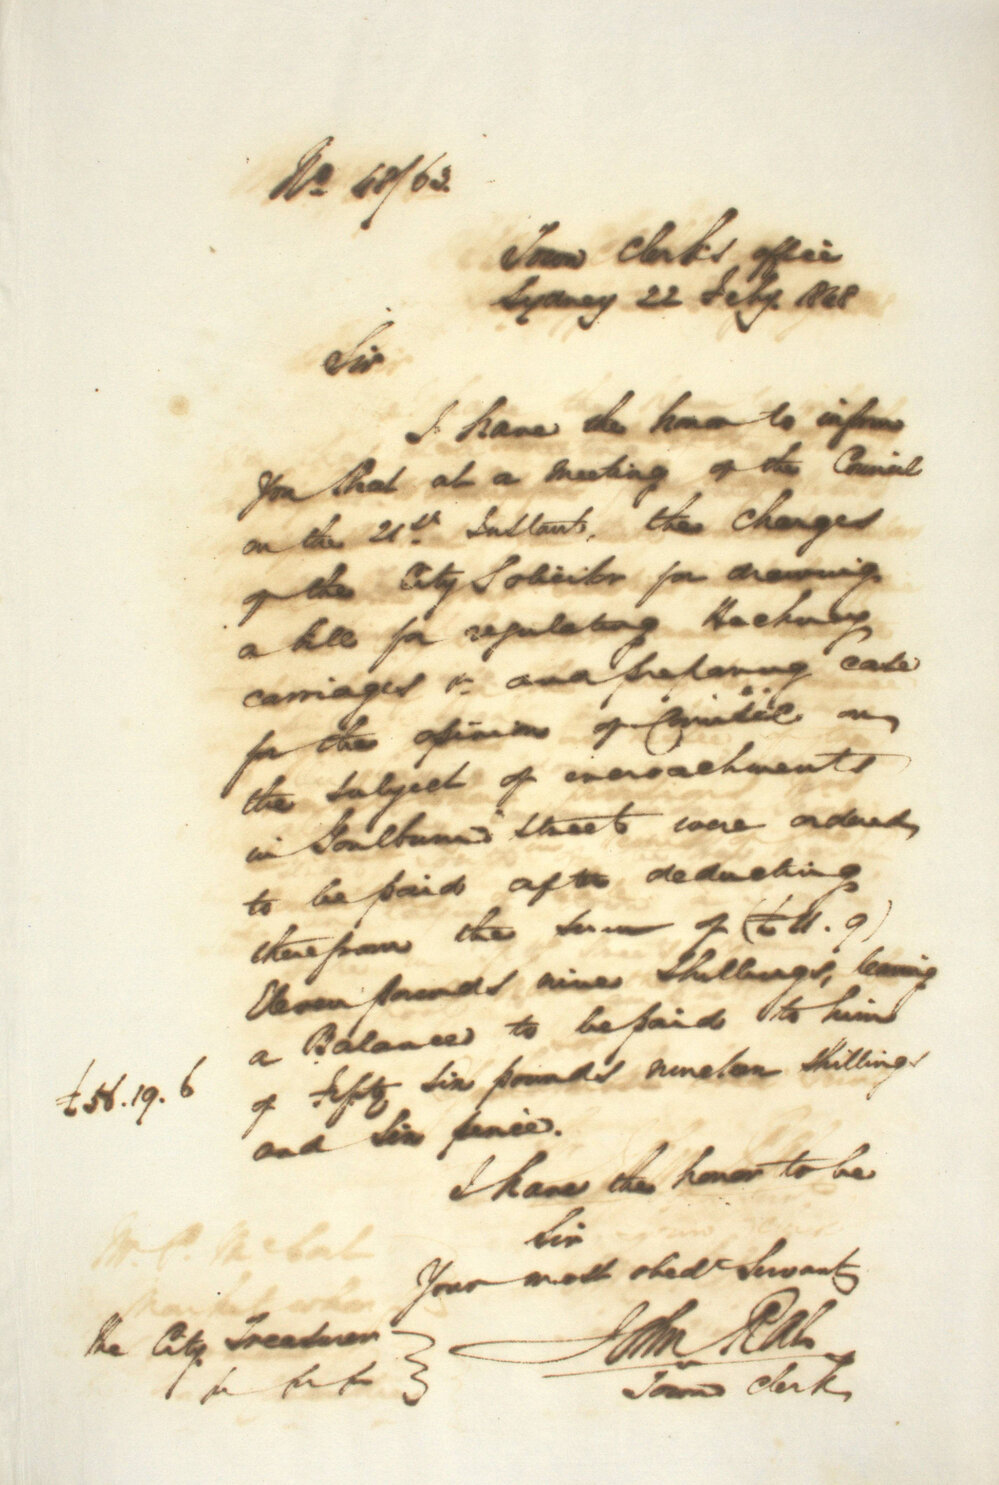 No 48/63.
Town Clerk's office
Sydney 22 Feby. 1848
Sir
I have the honor to inform
You that at a meeting of the Council
on the 21st Instant, the charges
of the City Solicitor for drawing
a bill for regulating Hackney
carriages &c and preparing case
for the opinion of Council on
the subject of encroachments
in Goulburn Street were ordered
to be paid after deducting
therefrom the sum of (£11. 9)
Eleven pounds nine shillings, leaving
a Balance to be paid to him
of Fifty six pounds nineteen shillings
£56. 19. 6
and six pence.
I have the honor to be
Sir
Your most obedt Servant
John Rae
Town Clerk
The City Treasurer